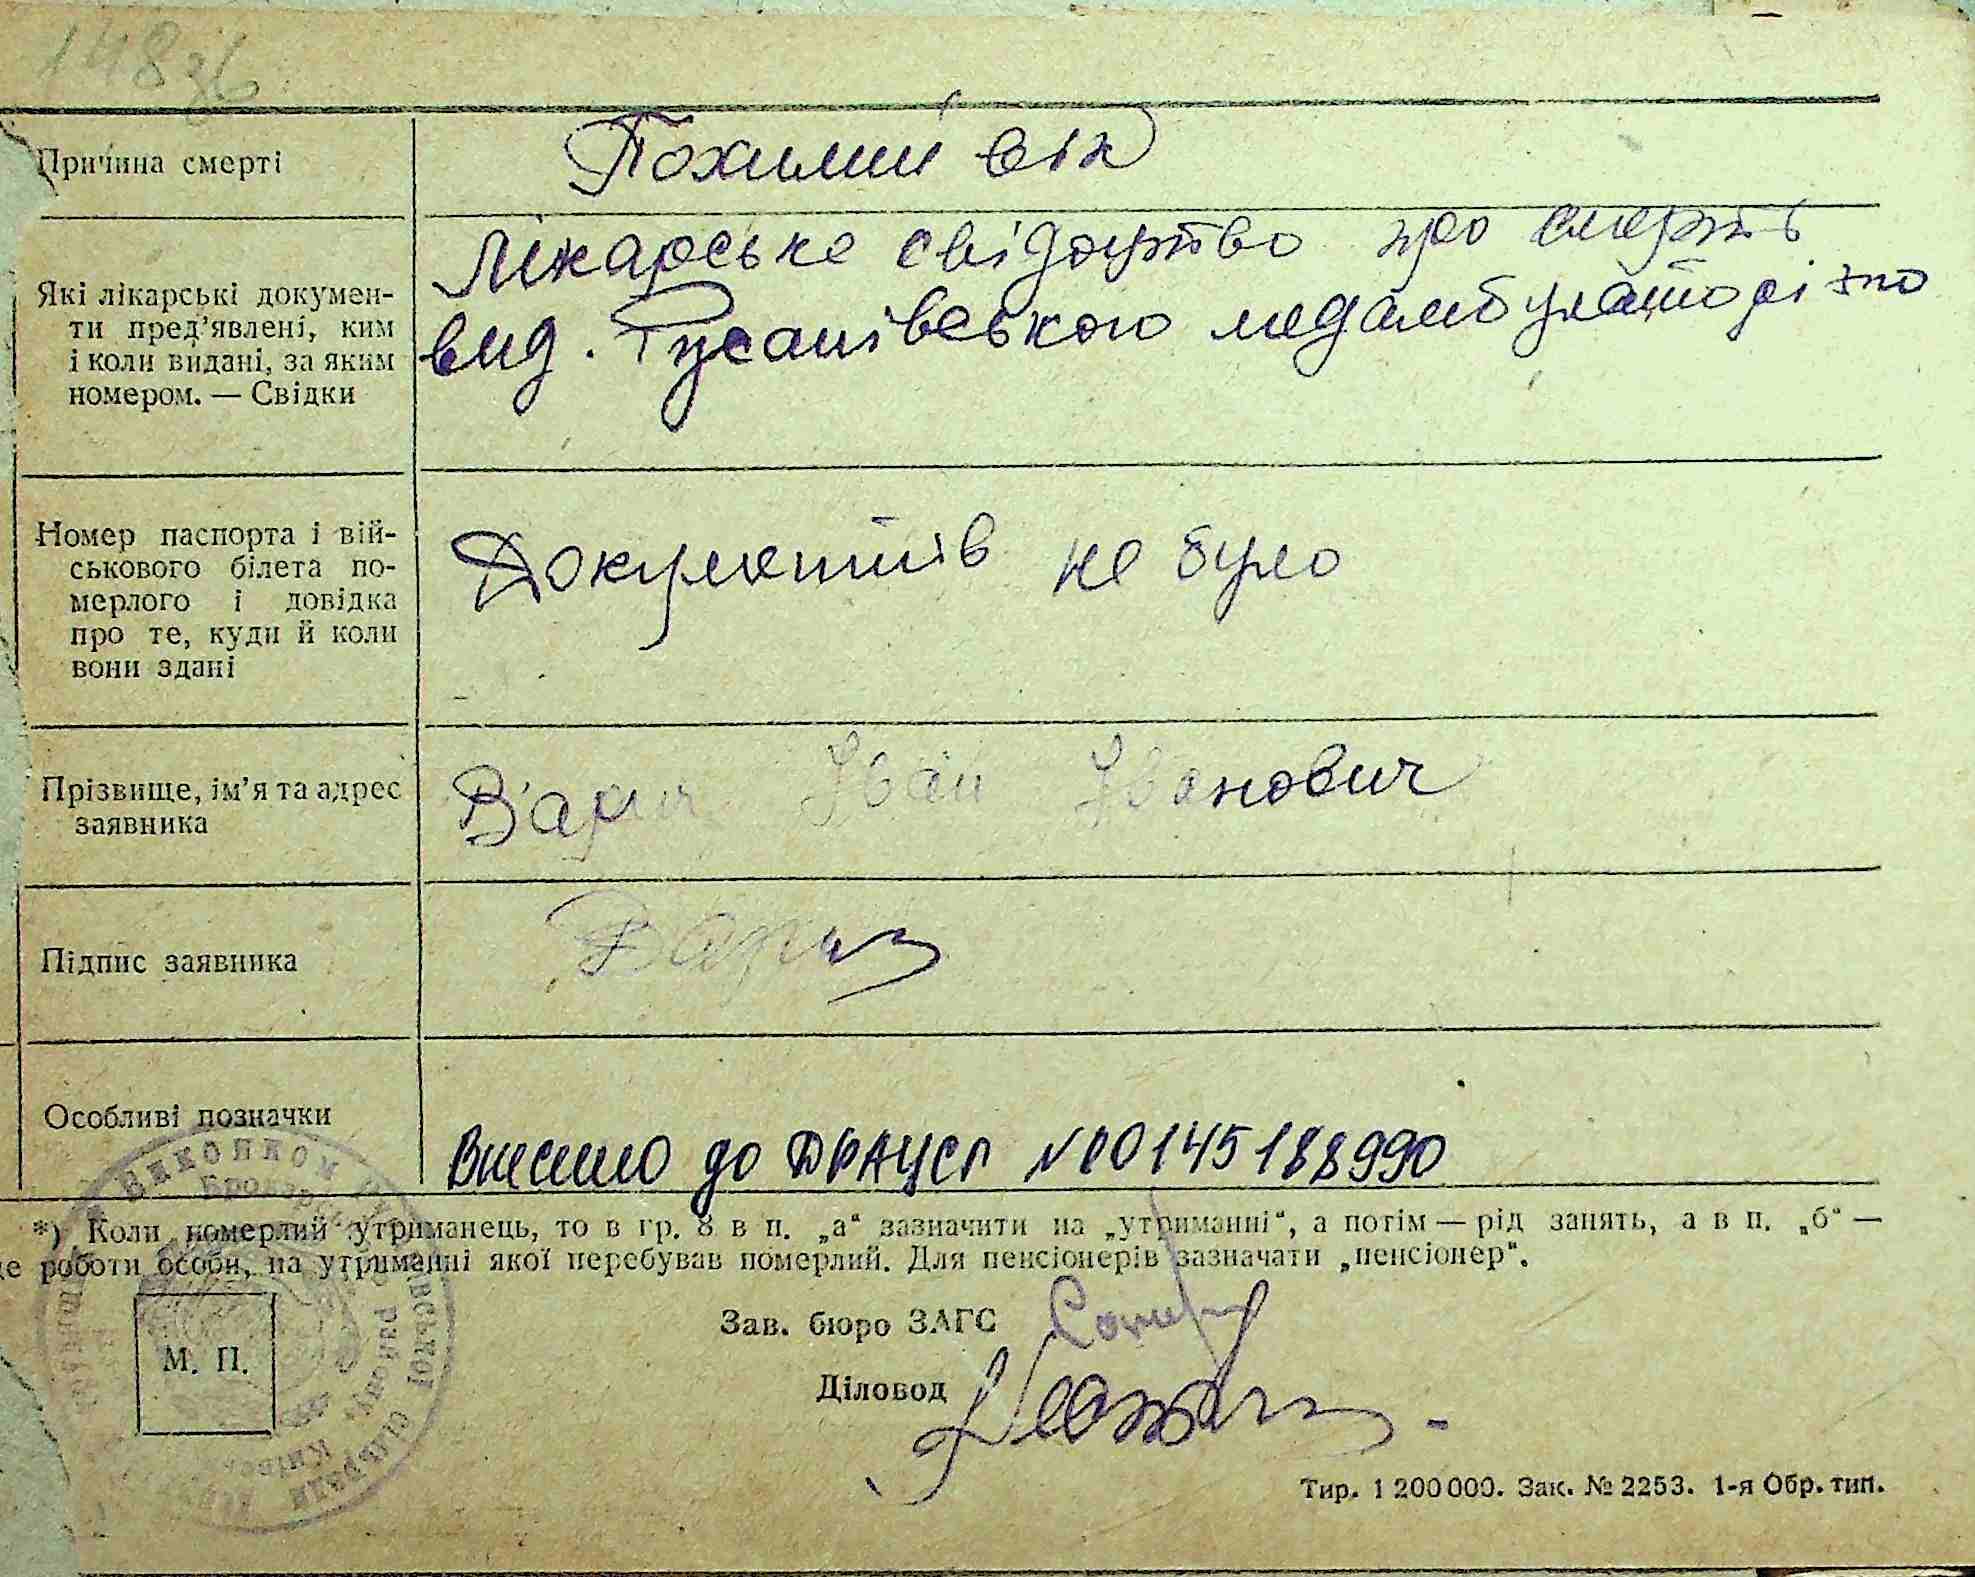 148 зв
Причина смерті
Похилий вік
Які лікарські докумен-
ти пред'явлені, ким
і коли видані, за яким
номером. — Свідки
Лікарське свідоцтво про смерть
вид. Русанівською медамбулаторією
Номер паспорта і вій-
ськового білета по-
мерлого і довідка
про те, куди й коли
вони здані
Документів не було
Прізвище, ім'я та адрес
заявника
Варич Іван Іванович
Підпис заявника
Варич
Особливі позначки
Внесено до ДРАЦСГ №00145188990
*) Коли померлий утриманець, то в гр. 8 в п. „а“ зазначити на „утриманні“, а потім — рід занять, а в п. „б“ —
це роботи особи, на утриманні якої перебував померлий. Для пенсіонерів зазначати „пенсіонер“.
Зав. бюро ЗАГС
М. П.
Діловод
Тир. 1 200 000. Зак. № 2253. 1-я Обр. тип.